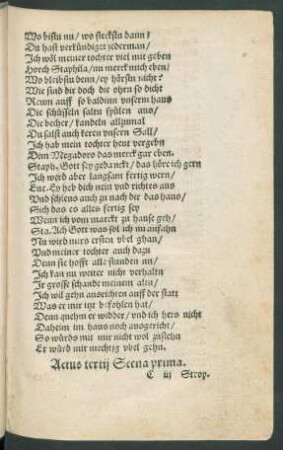 Wo bistu nu/ wo steckstu dann?
Du hast verkündiget jederman/
Ich wöl meiner tochter viel mit geben
Horch Staphila/ nu merck mich eben/
Wo bleibstu denn/ ey hörstu nicht?
Wie sind dir doch die ohrn so dicht
Reum auff so baldinn vnserm haus
Die schüsseln saltu spülen aus/
Die becher/ kandeln allzumal
Du salst auch keren vnsern Sall/
Ich hab mein tochter heut vergebn
Dem Megadoro das merck gar eben.
Staph. Gott sey gedanckt/ das höre ich gern
Ich werd aber langsam fertig wern/
Euc. Ey heb dich nein vnd richtes aus
Vnd schleus auch zu nach dir das haus/
Sich das es alles fertig sey
Wenn ich vom marckt zu hause geh/
Sta. Ach Gott was sol ich nu anfahn
Nu wird mirs ersten vbel ghan/
Vnd meiner tochter auch dazu
Denn sie hofft alle stunden nu/
Ich kan nu weiter nicht verhaltn
Jr grosse schande meinem altn/
Ich wil gehn ausrichten auff der statt
Was er mir itzt befohlen hat/
Denn quehm er widder/ vnd ich hets nicht
Daheim im haus noch ausgericht/
So würds mit mir nicht wol zustehn
Er würd mir mechtig vbel gehn.
Actus tertij Scena prima.
C iij Strop.